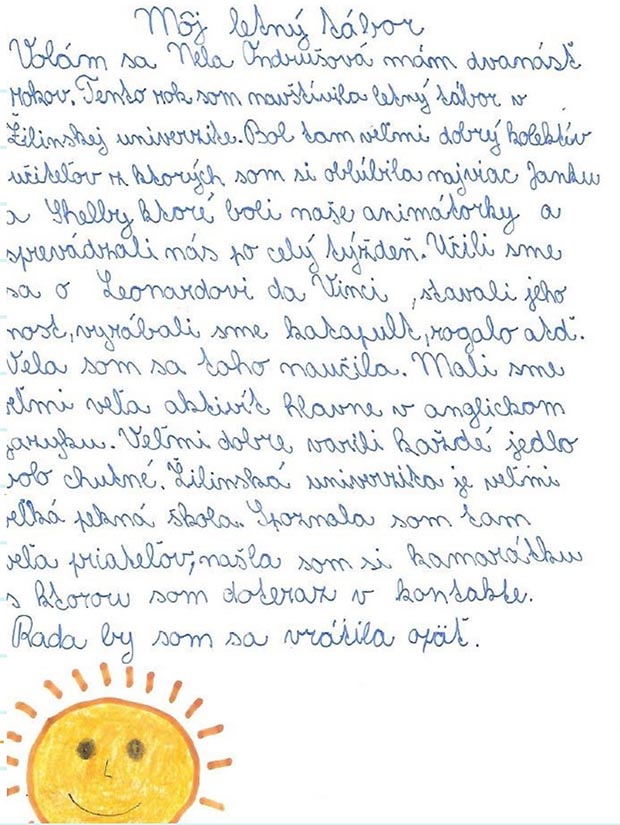 Môj letný tábor
Volám sa Nela Ondrušová mám dvanásť
rokov. Tento rok som navštívila letný tábor v
Žilinskej univerrite. Bol tam veľmi dobrý kolektív
učiteľov z ktorých som si obľúbila najviac Janku
a Shelby ktoré boli naše animátorky a
sprevádzali nás po celý týždeň. Učili sme
sa o Leonardovi da Vinci , stavali jeho
most, vyrábali sme katapult, rogalo atď.
Vela som sa toho naučila. Mali sme
eľmi veľa aktivít hlavne v anglickom
jazyku. Veľmi dobre varili každé jedlo
olo chutné. Žilinská univerzita je veľmi
eľká pekná škola. Spoznala som tam
veľa priateľov, našla som si kamarátku
s ktorou som doteraz v kontakte.
Rada by som sa vrátila opäť.